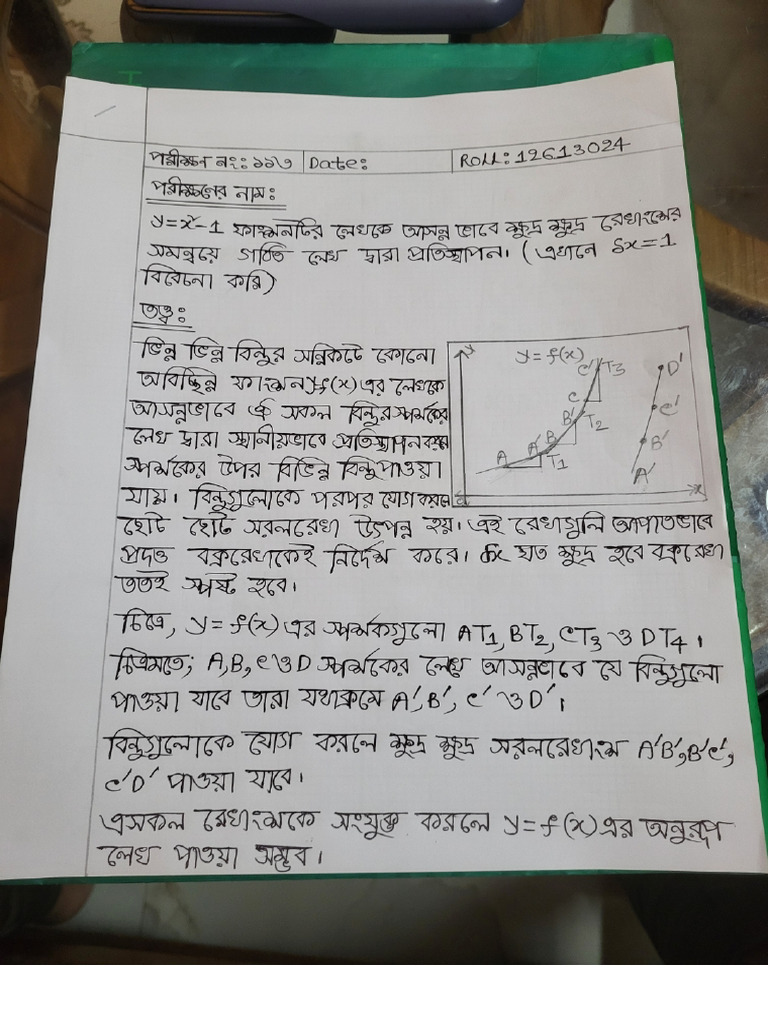 পরীক্ষণ নং: ১১৩ Date: ROLL: 12613024
পরীক্ষণের নাম:
y=x²-1 ফাংশনটির লেখকে আসন্ন ভাবে ক্ষুদ্র ক্ষুদ্র রেখাংশের
সমন্বয়ে গঠিত লেখ দ্বারা প্রতিস্থাপন। (এখানে δx=1
বিবেচনা করি)
তত্ত্ব:
ভিন্ন ভিন্ন বিন্দুর সন্নিকটে কোনো
অবিচ্ছিন্ন ফাংশন y=f(x) এর লেখকে
আসন্নভাবে ঐ সকল বিন্দুর স্পর্শকের
লেখ দ্বারা স্থানীয়ভাবে প্রতিস্থাপন করলে
স্পর্শকের উপর বিভিন্ন বিন্দু পাওয়া
যায়। বিন্দুগুলোকে পরপর যোগ করলে
ছোট ছোট সরলরেখা উৎপন্ন হয়। এই রেখাগুলি আপাতভাবে
প্রদত্ত বক্ররেখাকেই নির্দেশ করে। δx যত ক্ষুদ্র হবে বক্ররেখা
ততই স্পষ্ট হবে।
y
y=f(x)
C' T3
C
B' T2
B
A'
A T1
x
D'
C'
B'
A'
চিত্রে, y=f(x) এর স্পর্শকগুলো AT1, BT2, CT3 ও DT4।
চিত্রমতে; A,B,C ও D স্পর্শকের লেখে আসন্নভাবে যে বিন্দুগুলো
পাওয়া যাবে তারা যথাক্রমে A', B', C' ও D'।
বিন্দুগুলোকে যোগ করলে ক্ষুদ্র ক্ষুদ্র সরলরেখাংশ A'B', B'C',
C'D' পাওয়া যাবে।
এসকল রেখাংশকে সংযুক্ত করলে y=f(x) এর অনুরূপ
লেখ পাওয়া সম্ভব।